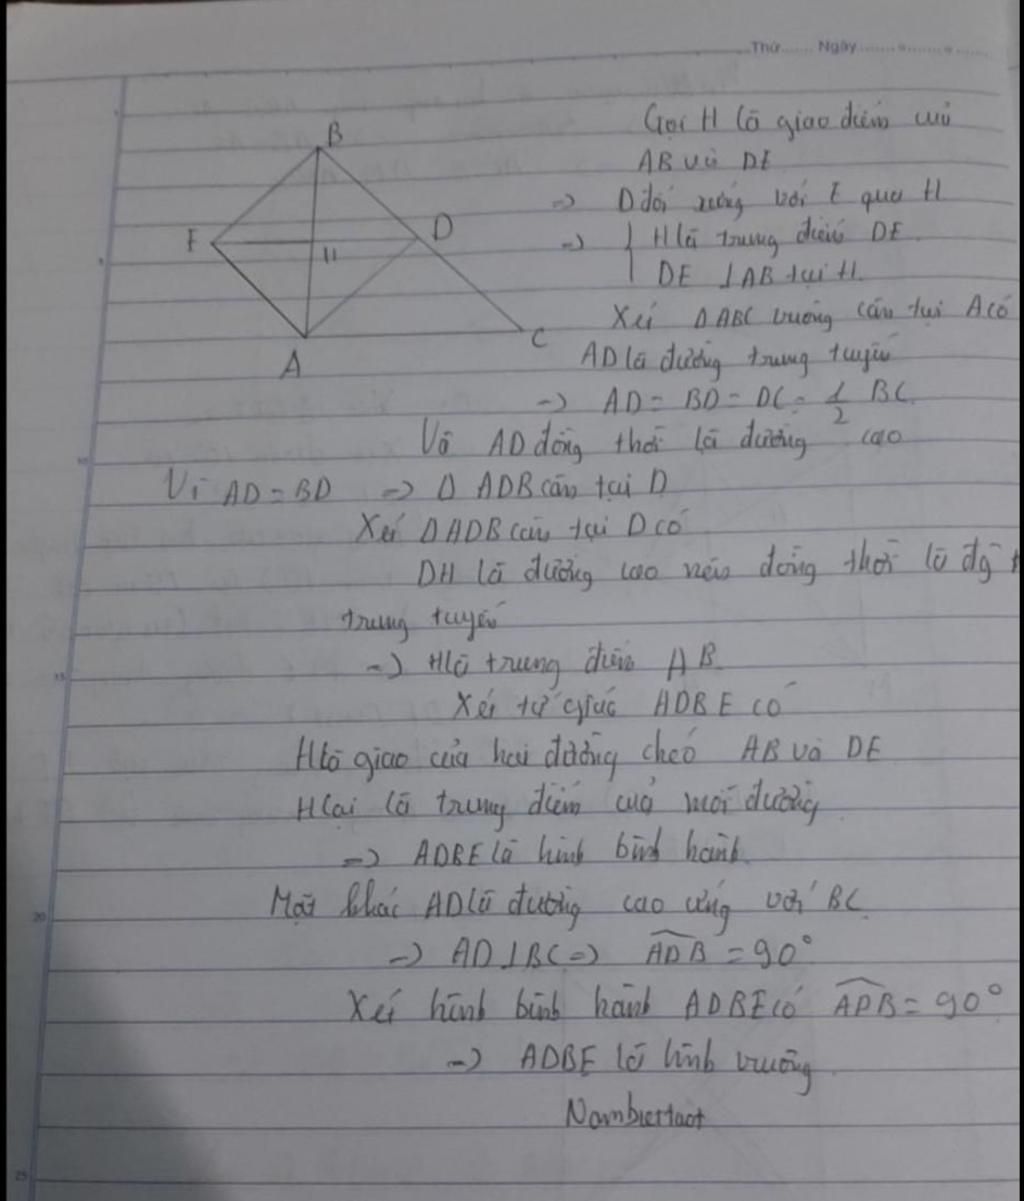 Thứ...... Ngày..................
B
Gọi H là giao điểm của
AB và DE
E
H
D
=> D đối xứng với E qua H
=> { H là trung điểm DE
DE ⊥ AB tại H.
Xét Δ ABC vuông cân tại A có
A
C
AD là đường trung tuyến
=> AD = BD = DC = 1/2 BC.
Và AD đồng thời là đường cao
Vì AD = BD => Δ ADB cân tại D
Xét Δ ADB cân tại D có
DH là đường cao nên đồng thời là đg
trung tuyến
=> H là trung điểm AB.
Xét tứ giác ADBE có
H là giao của hai đường chéo AB và DE
H lại là trung điểm của mỗi đường
=> ADBE là hình bình hành.
Mặt khác AD là đường cao ứng với BC
=> AD ⊥ BC => ADB = 90°
Xét hình bình hành ADBE có ADB = 90°
=> ADBE là hình vuông
10
15
20
25